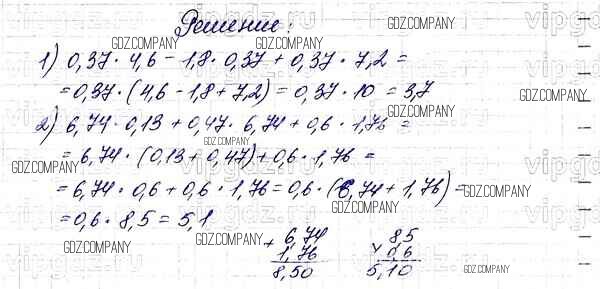 Решение:
1) 0,37 · 4,6 - 1,8 · 0,37 + 0,37 · 7,2 =
= 0,37 · (4,6 - 1,8 + 7,2) = 0,37 · 10 = 3,7
2) 6,74 · 0,13 + 0,47 · 6,74 + 0,6 · 1,76 =
= 6,74 · (0,13 + 0,47) + 0,6 · 1,76 =
= 6,74 · 0,6 + 0,6 · 1,76 = 0,6 · (6,74 + 1,76) =
= 0,6 · 8,5 = 5,1
+ 6,74
1,76
8,50
8,5
× 0,6
5,10
GDZ.COMPANY
GDZ.COMPANY
GDZ.COMPANY
GDZ.COMPANY
GDZ.COMPANY
GDZ.COMPANY
GDZ.COMPANY
GDZ.COMPANY
GDZ.COMPANY
GDZ.COMPANY
GDZ.COMPANY
GDZ.COMPANY